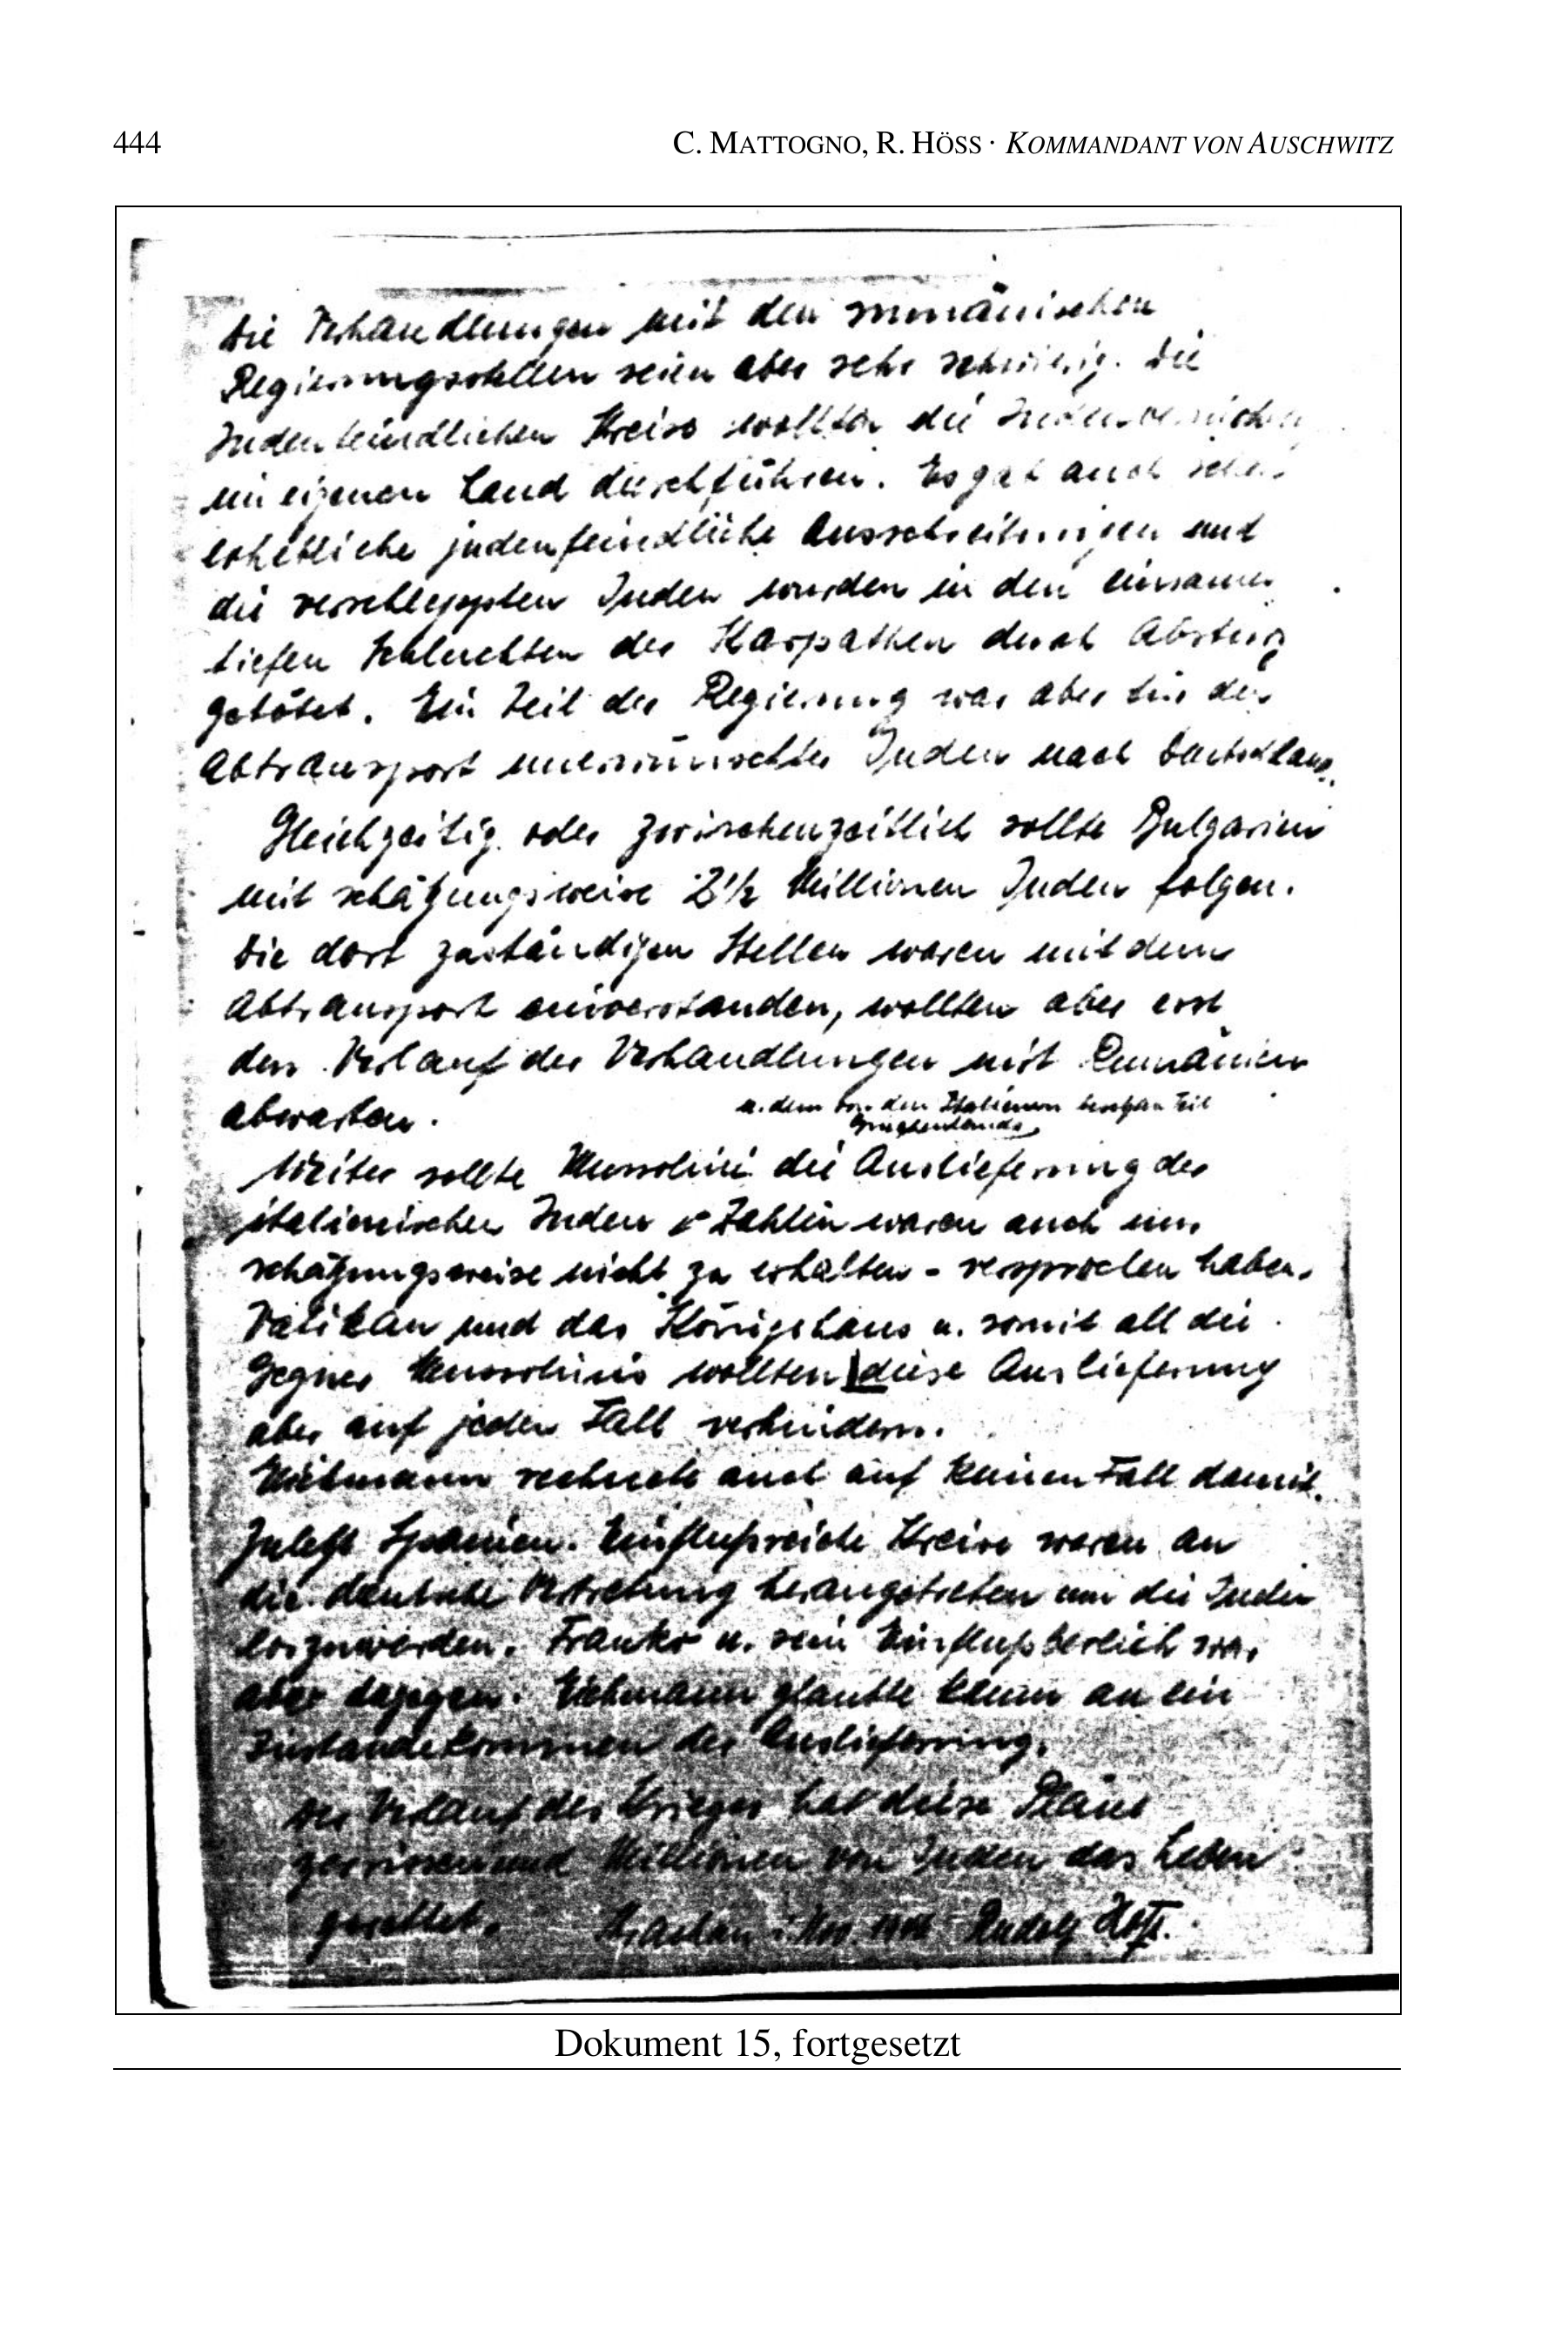 444
C. MATTOGNO, R. HÖSS · KOMMANDANT VON AUSCHWITZ
Die Verhandlungen mit den rumänischen
Regierungsstellen seien aber sehr schwierig. Die
Judenfeindlichen Kreise wollten die
im eigenen Land durchführen. Es gab auch
erhebliche judenfeindliche Ausschreitungen und
die verschleppten Juden wurden in den einsamen
tiefen Schluchten der Karpathen durch Absturz
getötet. Ein Teil der Regierung war aber für den
Abtransport unerwünschter Juden nach Deutschland.
Gleichzeitig oder zwischenzeitlich sollte Bulgarien
mit schätzungsweise 2½ Millionen Juden folgen.
Die dort zuständigen Stellen waren mit dem
Abtransport einverstanden, wollten aber erst
den Verlauf der Verhandlungen mit Rumänien
abwarten.
u. dem von den Italienern besetzten Teil
Griechenlands,
Weiter sollte Mussolini die Auslieferung der
italienischen Juden Zahlen waren auch nur
schätzungsweise nicht zu erhalten - versprochen haben.
Vatikan und das Königshaus u. somit all die
Gegner Mussolinis wollten diese Auslieferung
aber auf jeden Fall verhindern.
Eichmann rechnete auch auf keinen Fall damit.
Zuletzt Spanien. Einflußreiche Kreise waren an
die deutsche Vertretung herangetreten um die Juden
loszuwerden. Franko u. sein Einflußbereich war
aber dagegen. Eichmann glaubte kaum an ein
Zustandekommen der Auslieferung.
Der Verlauf des Krieges hat diese Pläne
zerrissen und Millionen von Juden das Leben
gerettet. Krakau i. Nov. 1946 Rudolf Höß.
Dokument 15, fortgesetzt